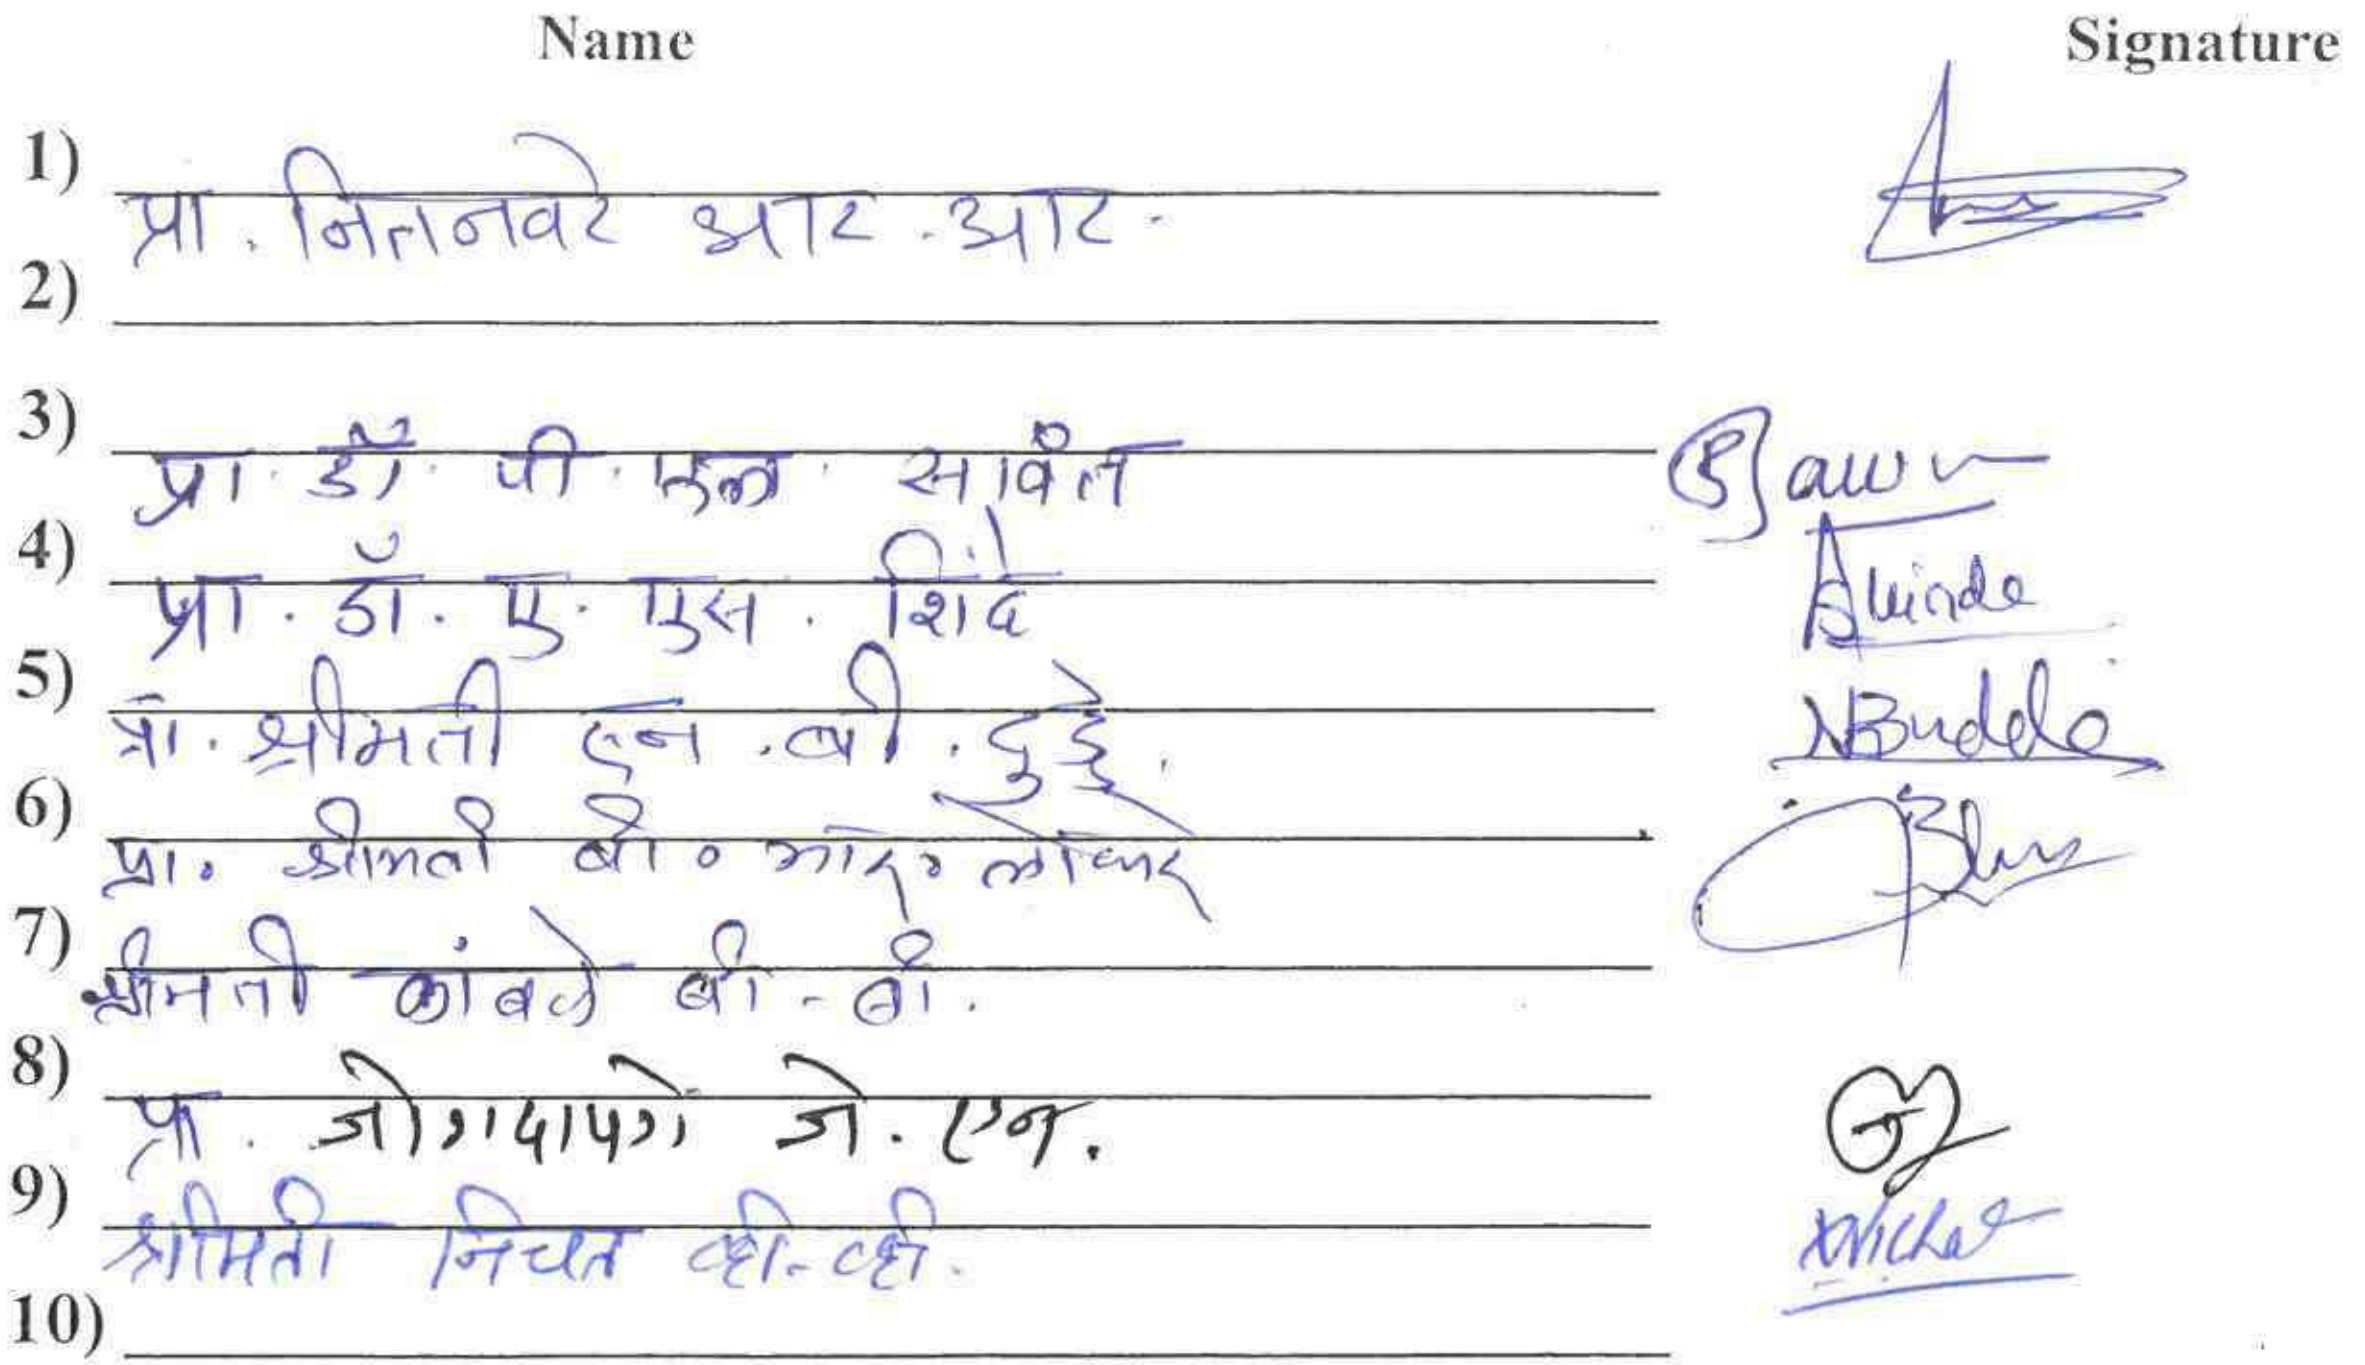 Name Signature
1)
प्रा. नितनवरे आर. आर.
2)
3)
प्रा. डॉ. पी. एल. सावंत
4)
प्रा. डॉ. ए. एस. शिंदे Shinde
5)
प्रा. श्रीमती एन. बी. NBudde
6)
प्रा. श्रीमती बी.
7)
श्रीमती कांबळे बी. बी.
8)
प्रा. जोगदापगे जे. एन.
9)
श्रीमती निचत व्ही. व्ही. Nichat
10)